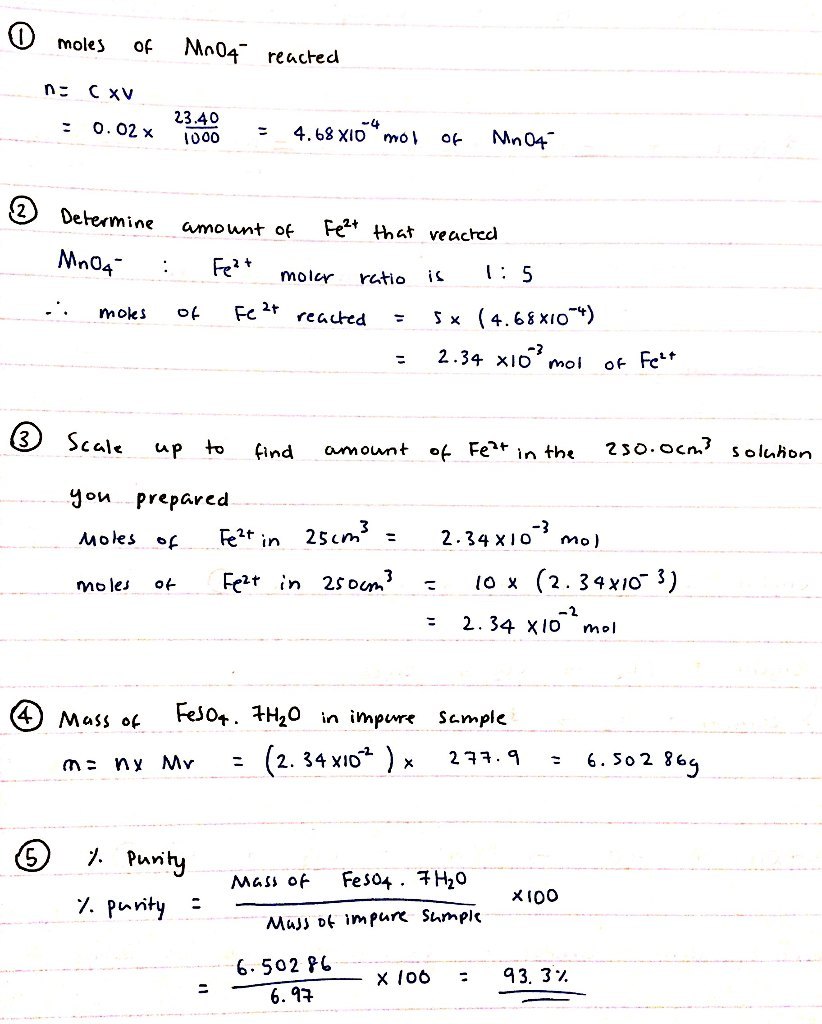 ① moles of MnO4⁻ reacted
n = C x V
= 0.02 x 23.40/1000 = 4.68 x10⁻⁴ mol of MnO4⁻
② Determine amount of Fe²⁺ that reacted
MnO4⁻ : Fe²⁺ molar ratio is 1 : 5
∴ moles of Fe²⁺ reacted = 5 x (4.68 x10⁻⁴)
= 2.34 x10⁻³ mol of Fe²⁺
③ Scale up to find amount of Fe²⁺ in the 250.0cm³ solution
you prepared
Moles of Fe²⁺ in 25cm³ = 2.34 x10⁻³ mol
moles of Fe²⁺ in 250cm³ = 10 x (2.34 x10⁻³)
= 2.34 x10⁻² mol
④ Mass of FeSO4 . 7H2O in impure sample
m = n x Mr = (2.34 x10⁻²) x 277.9 = 6.50286g
⑤ % Purity
% purity = Mass of FeSO4 . 7H2O / Mass of impure Sample x100
= 6.50286 / 6.97 x 100 = 93.3%